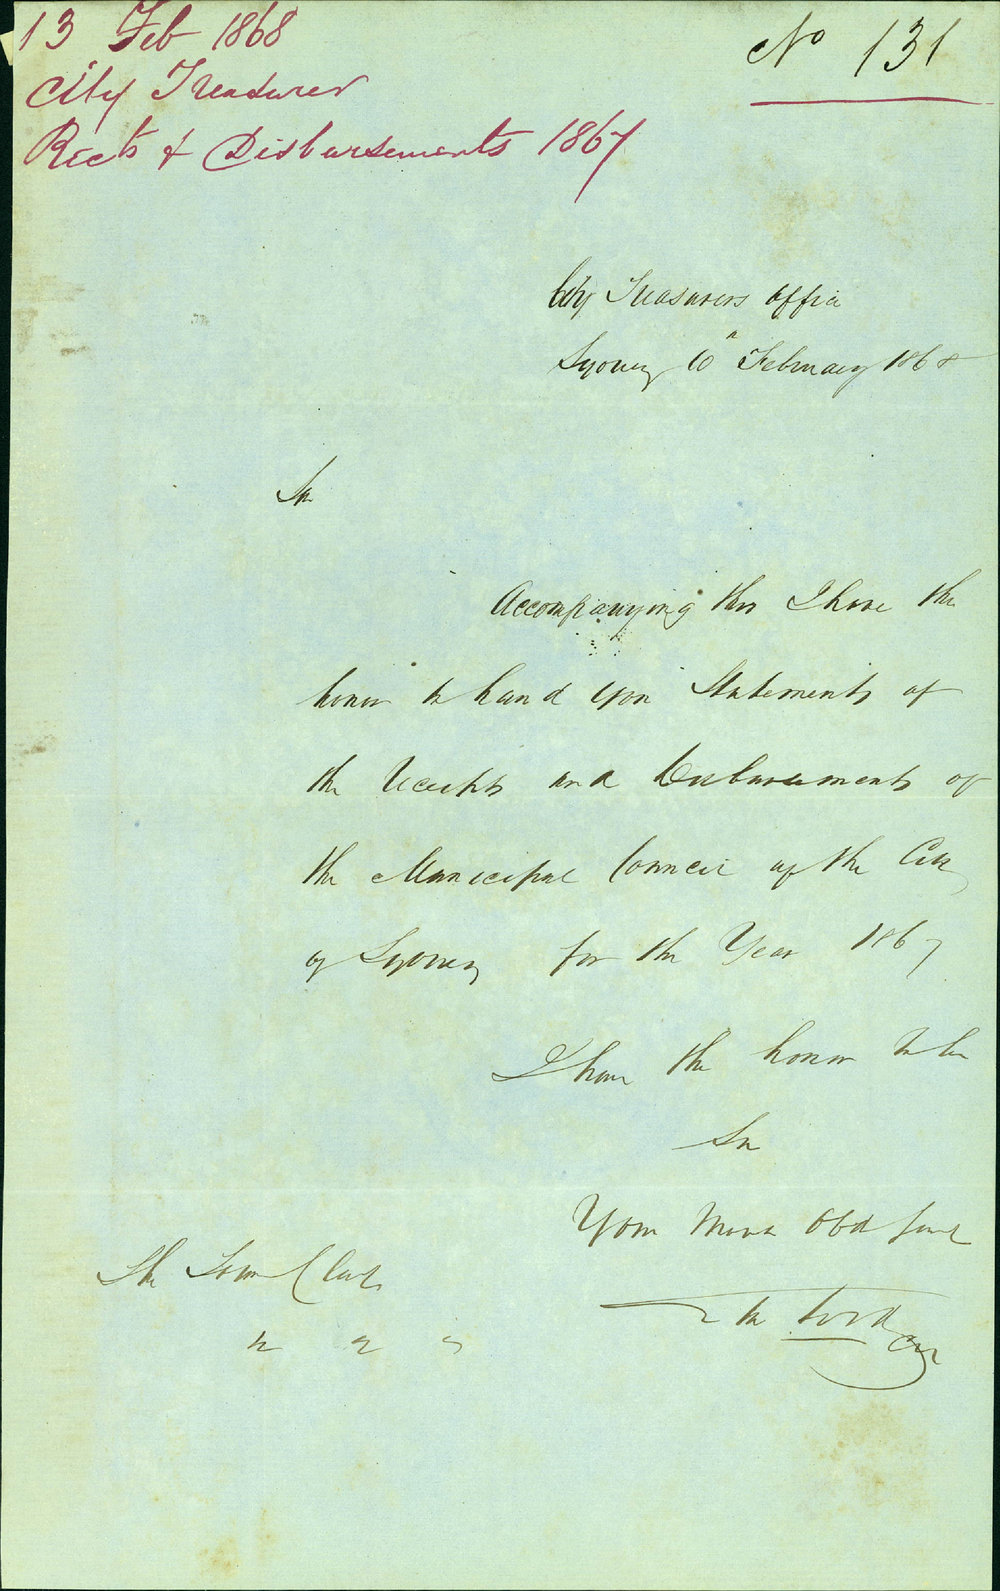 13 Feb 1868
City Treasurer
Rects & Disbursements 1867
No 131
City Treasurers Office
Sydney 10th February 1868
Sir
Accompanying this I have the
honor to hand you Statements of
the Receipts and Disbursements of
the Municipal Council of the City
of Sydney for the Year 1867
I have the honor to be
Sir
Your Most Obd Servt
The Town Clerk